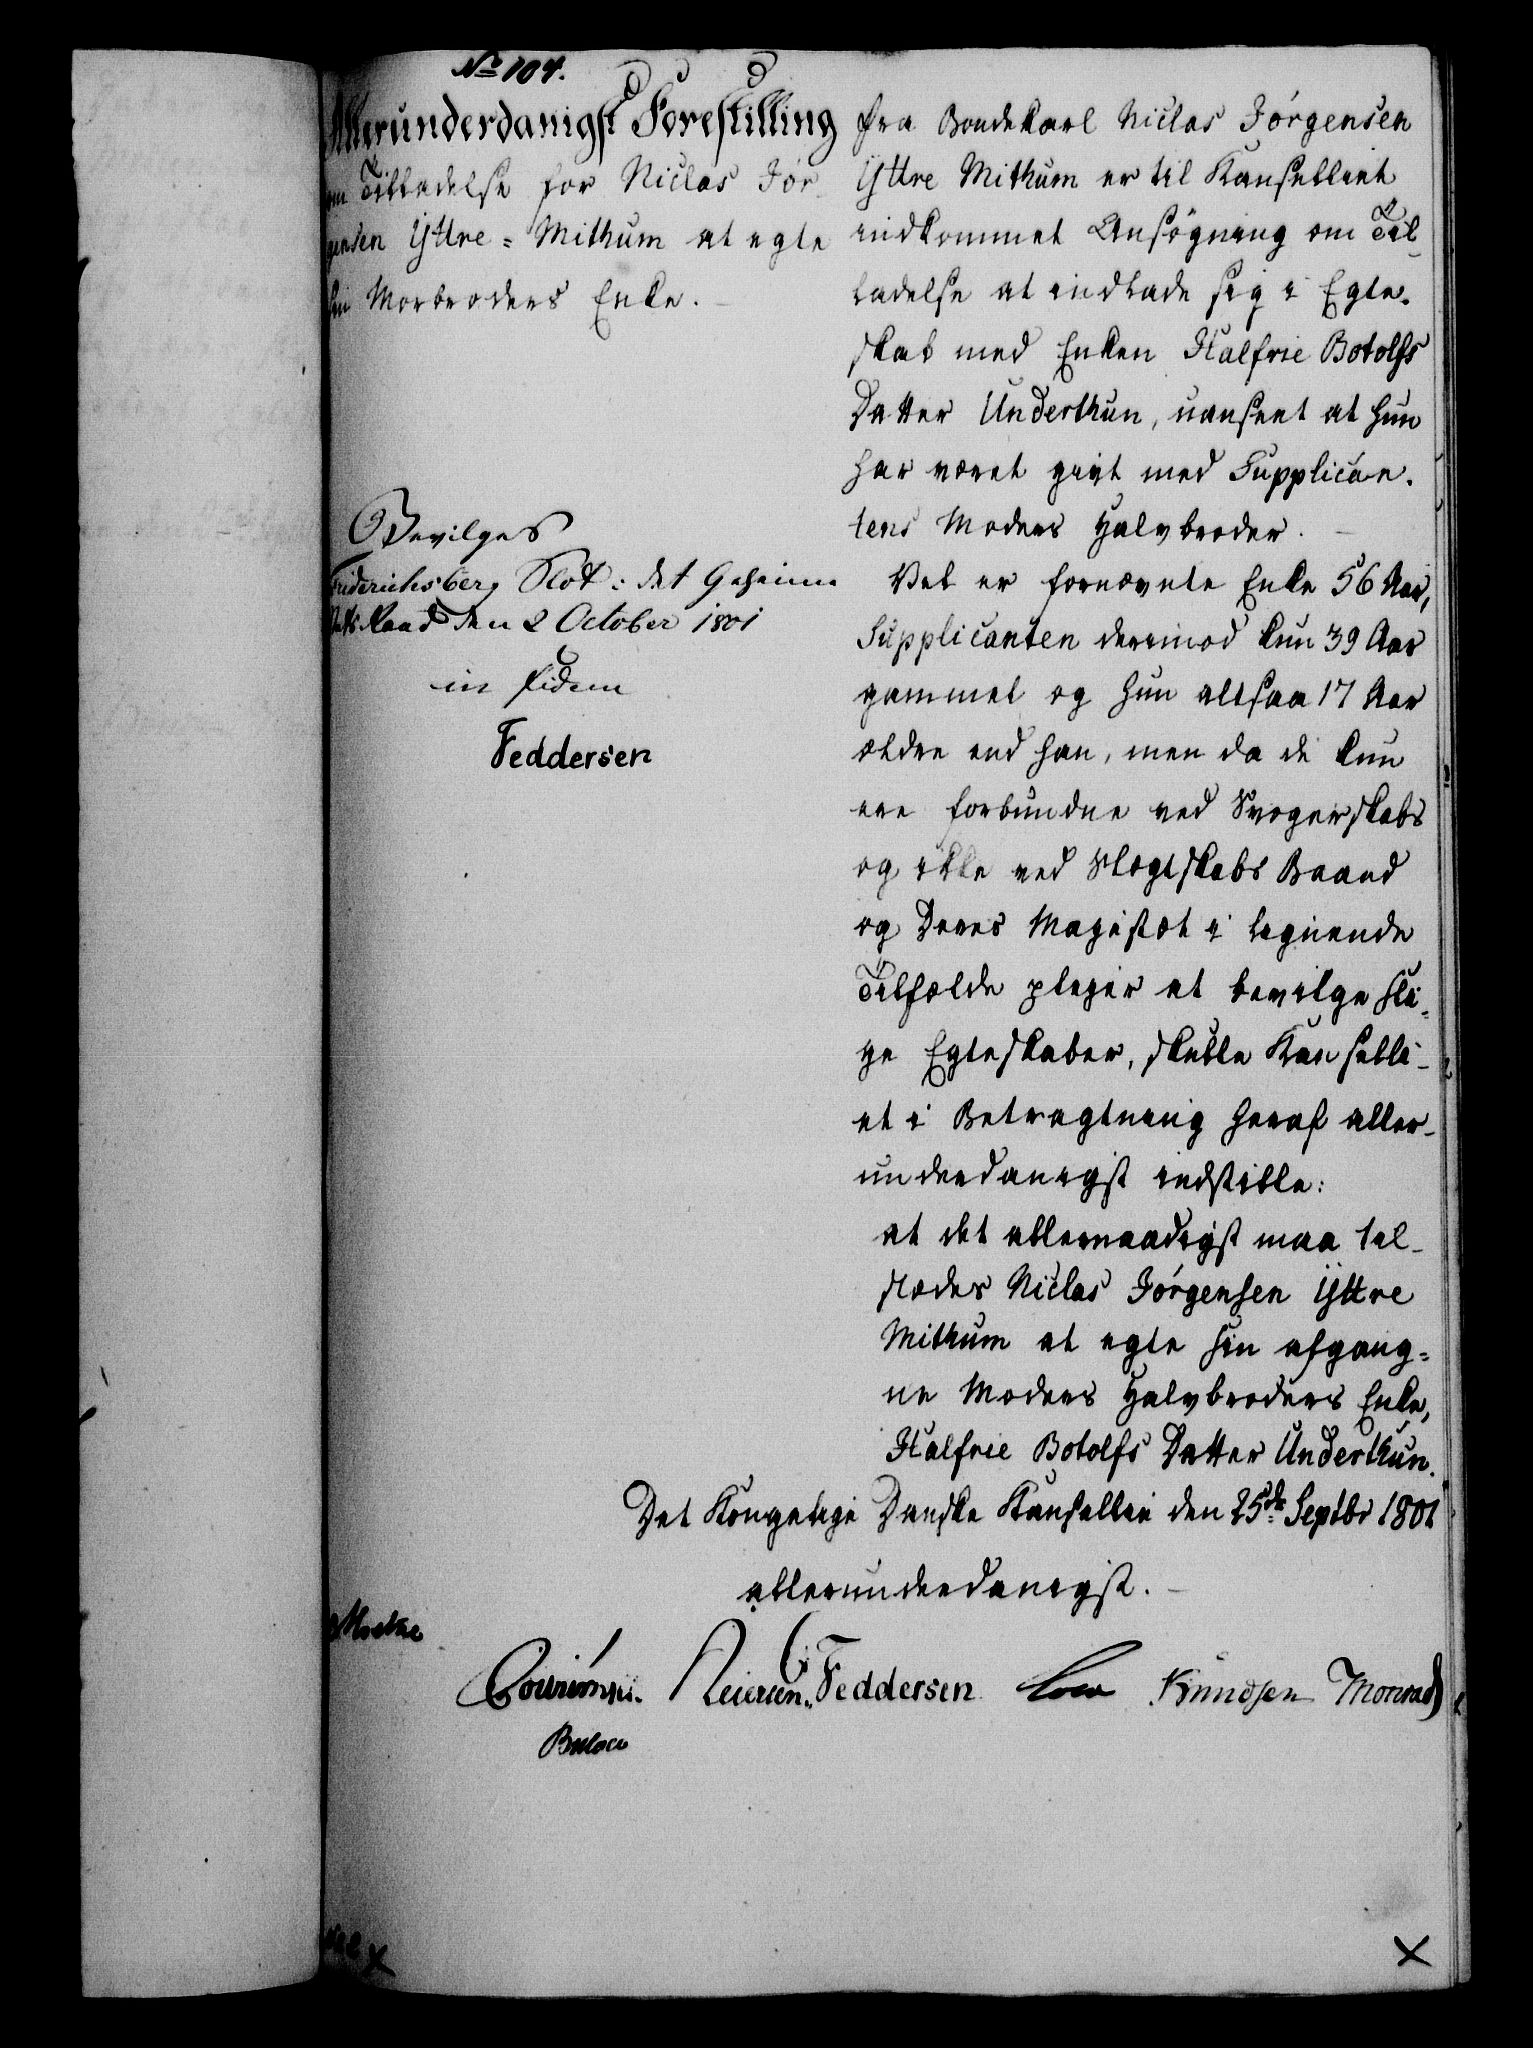 No 104.
Allerunderdanigst Forestilling
om Tilladelse for Niclas Jør-
gensen Yttre=Mithum at egte
sin Morbroders Enke.
Bevilges
Friderichsberg Slot i det Geheime
Statsraad den 2 October 1801
in fidem
Feddersen
Fra Bondekarl Niclas Jørgensen
Yttre Mithum er til Kanselliet
indkommet Ansøgning om Til-
ladelse at indlade sig i Egte-
skab med Enken Halfrie Botolfs
Datter Underthun, uanseet at hun
har været givt med Supplican-
tens Moders Halvbroder.
Vel er fornævnte Enke 56 Aar,
Supplicanten derimod kun 39 Aar
gammel og hun altsaa 17 Aar
ældre end han, men da de kun
ere forbundne ved Svogerskabs
og ikke ved Slægtskabs Baand
og Deres Majestæt i lignende
Tilfælde plejer at bevilge sli-
ge Egteskaber, skulle Kanselli-
et i Betragtning heraf aller-
underdanigst indstille:
at det allernaadigst maa til-
stædes Niclas Jørgensen Yttre
Mithum at egte sin afgang=
ne Moders Halvbroders Enke,
Halfrie Botolfs Datter Underthun.
Det Kongelige Danske Kansellie den 25de Septbr 1801
allerunderdanigst.
Moltke
Feddersen Knudsen Monrad
Bülow